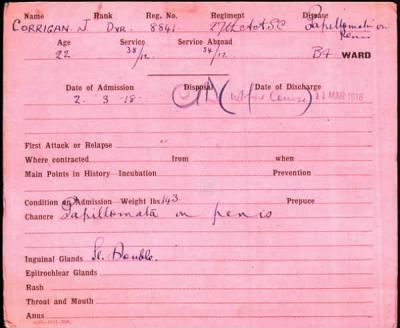 Name Rank Reg. No. Regiment Disease
CORRIGAN. J Dvr. 8841. 27th A.A.S.C Papillomata on Penis
Age Service Service Abroad
22. 38/12. 34/12. B4 WARD
Date of Admission Disposal Date of Discharge
2. 3. 18. 11 MAR 1918
First Attack or Relapse
Where contracted from when
Main Points in History Incubation Prevention
Condition on Admission Weight lbs 143 Prepuce
Chancre Papillomata on penis
Inguinal Glands Sl. Double.
Epitrochlear Glands
Rash
Throat and Mouth
Anus